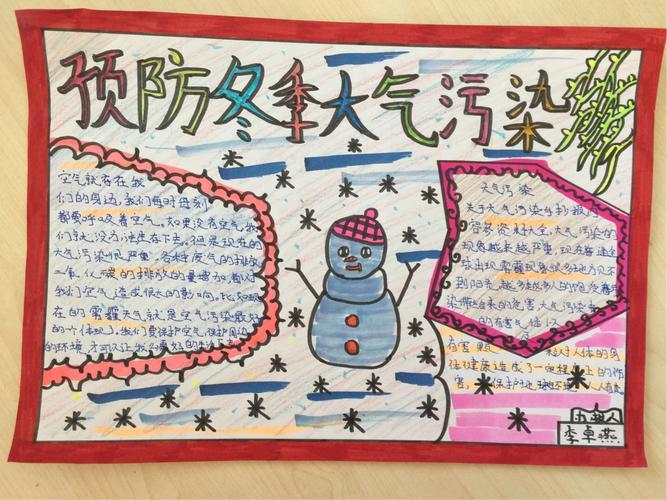 预防冬季大气污染
空气就存在我
们的身边,我们每时每刻
都要呼吸着空气。如果没有空气,我
们就没有法生存下去。但是现在的
大气污染很严重,各种废气的排放
二氧化碳的排放的量增加着对
我们空气造成很大的影响。比如现
在的雾霾天气就是空气污染最好
的一个体现了。我们要保护空气,保护周边
的环境,才可以让我们更好的生活下去
大气污染
关于大气污染手抄报内
容多资料大全,大气污染的
现象越来越严重,现在普遍全
球出现雾霾现象很多地方见不
到阳光,越多越多人的饱受着污
染带给来的危害,大气污染
的有害气体以
有害颗 对人体的身
体健康造成了一定程度上的伤
害, 保护地球环境人人有责
李卓燕